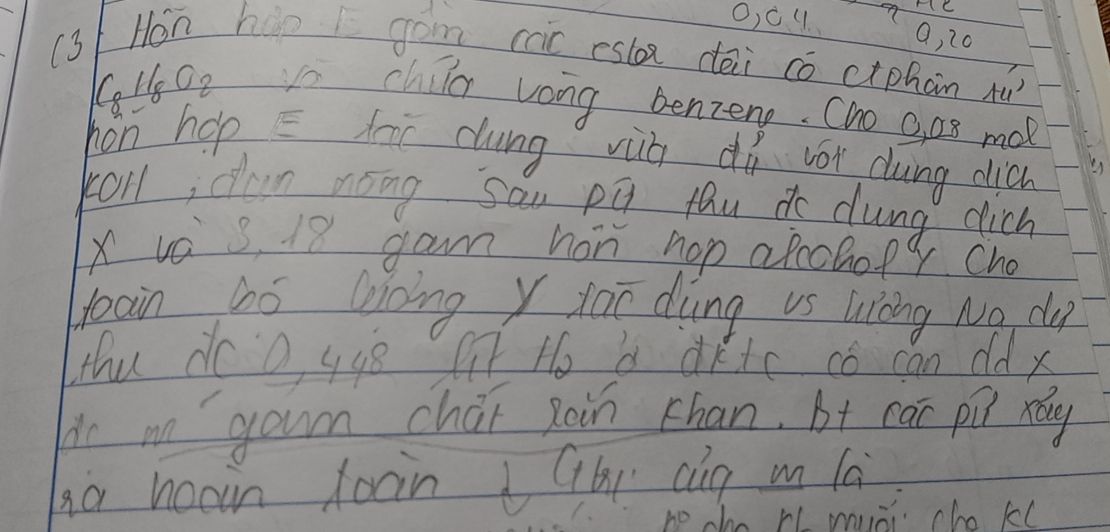 0,04 0,20
C3 Hỗn hợp E gồm các ester đều có ctphân tử
C8H8O2 và chứa vòng benzene. Cho 0,08 mol
hỗn hợp E tác dụng vừa đủ với dung dịch
KOH, đun nóng Sau pứ thu đc dung dịch
X và 3,18 gam hỗn hợp alcohol Y Cho
toàn bộ lượng Y tác dụng vs lượng Na dư
thu đc 0,448 lít H2 ở đktc cô cạn dd X
đc m gam chất rắn khan. bt các pứ xảy
ra hoàn toàn, Gtrị của m là
muối cho KL